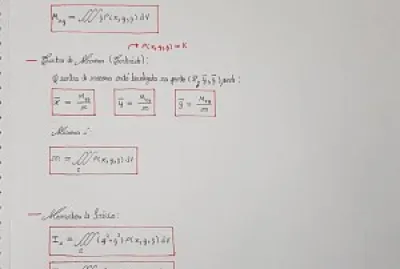 Mxy = ∭ z ρ(x,y,z) dV
→ ρ(x,y,z) = K
— Centro de Massa (Centroide):
O centro de massa está localizado no ponto (x̄, ȳ, z̄), onde:
x̄ = Myz/m   ȳ = Mxz/m   z̄ = Mxy/m
Massa:
m = ∭ ρ(x,y,z) dV
— Momentos de Inércia:
Ix = ∭ (y² + z²) ρ(x,y,z) dV